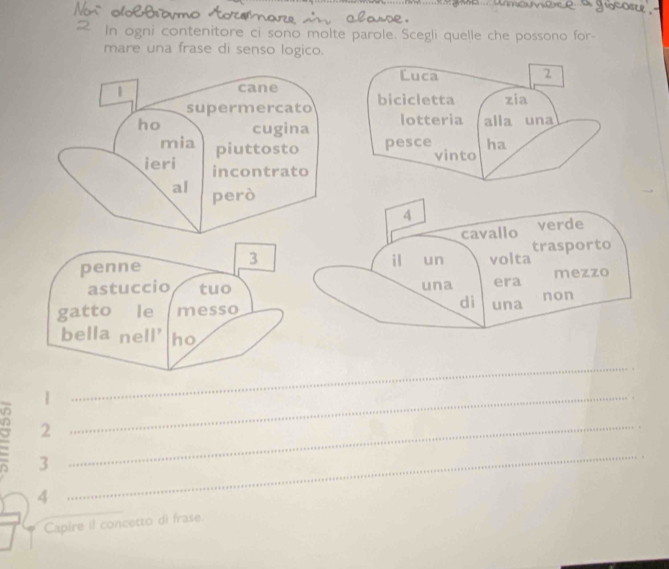 Noi dobbiamo tornare in classe.
2 In ogni contenitore ci sono molte parole. Scegli quelle che possono for-
mare una frase di senso logico.
1
cane
supermercato
ho
cugina
mia
piuttosto
ieri
incontrato
al
però
2
Luca
bicicletta
zia
lotteria
alla una
pesce
ha
vinto
3
penne
astuccio
tuo
gatto le
messo
bella nell'
ho
4
cavallo
verde
trasporto
il un
volta
mezzo
una
era
di
una
non
1
2
3
4
Capire il concetto di frase.